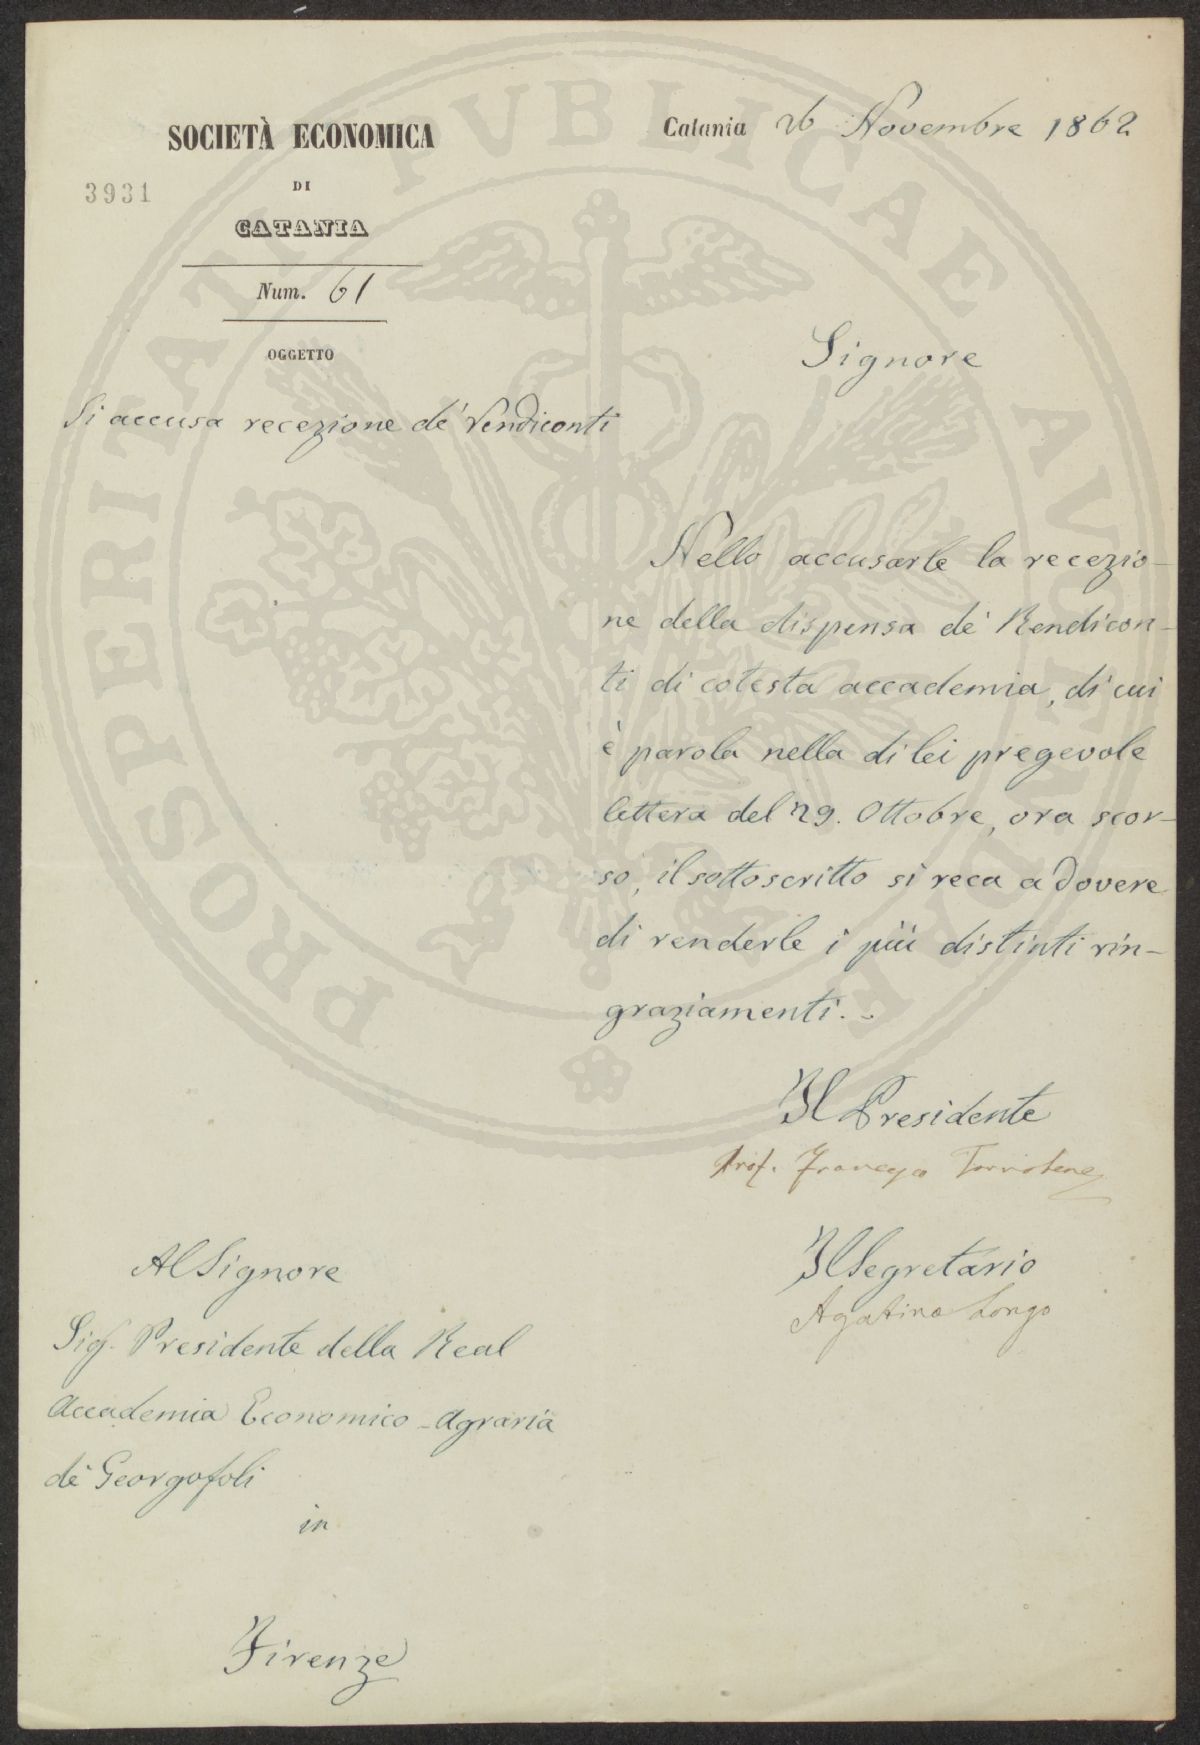 SOCIETÀ ECONOMICA
DI
CATANIA
3931
Num. 61
OGGETTO
Si accusa recezione de' Rendiconti
Catania 26 Novembre 1862
Signore
Nello accusarle la recezio-
ne della dispensa de' Rendicon-
ti di cotesta accademia, di cui
è parola nella di lei pregevole
lettera del 29. Ottobre, ora scor-
so, il sottoscritto si reca a dovere
di renderle i più distinti rin-
graziamenti.
Il Presidente
Prof.
Il Segretario
Agatino Longo
Al Signore
Sig. Presidente della Real
Accademia Economico-Agraria
de' Georgofoli
in
Firenze
PROSPERITATI PUBLICAE AUGENDAE